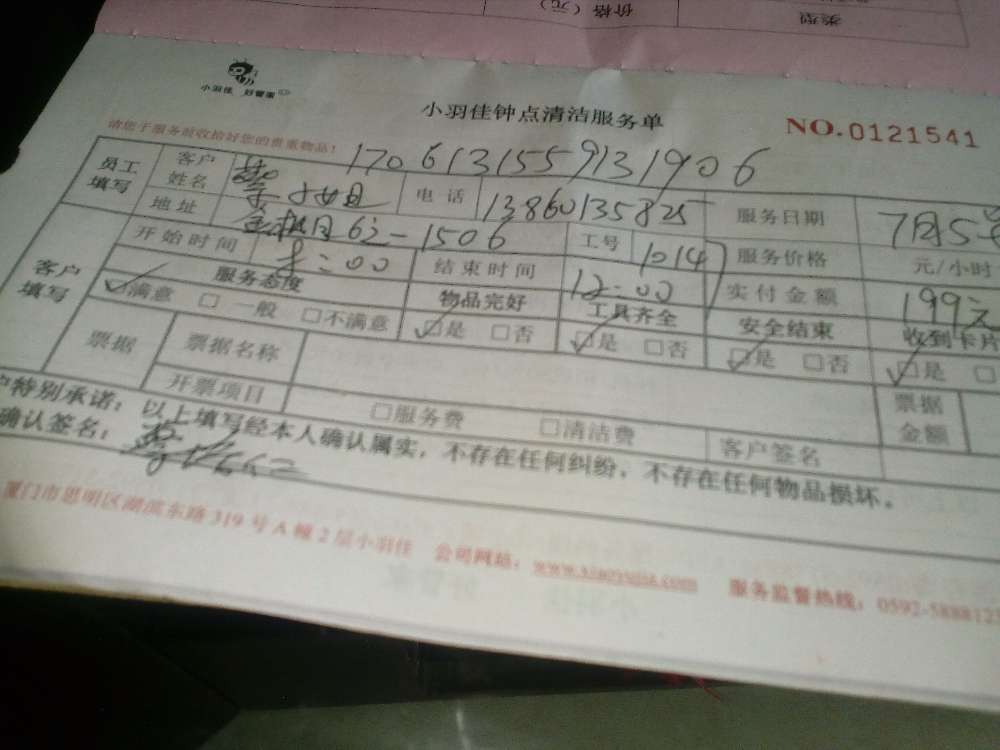 价格（元）
类型
小羽佳 好管家
小羽佳钟点清洁服务单
NO.0121541
请您于服务前收拾好您的贵重物品！
170613155913 1906
员工填写 客户姓名 小姐 电话 13860135825 服务日期 7月5
地址 6之-1506 工号 1014 服务价格 元/小时
客户填写 开始时间 8:00 结束时间 12:00 实付金额 199元
服务态度 物品完好 工具齐全 安全结束 收到卡片
☑满意 □一般 □不满意 ☑是 □否 ☑是 □否 ☑是 □否 ☑是 □
票据 票据名称 票据金额
开票项目 □服务费 □清洁费 客户签名
户特别承诺：以上填写经本人确认属实，不存在任何纠纷，不存在任何物品损坏。
确认签名：
厦门市思明区湖滨东路319号A幢2层小羽佳 公司网站：www.xiaoyujia.com 服务监督热线：0592-5888123